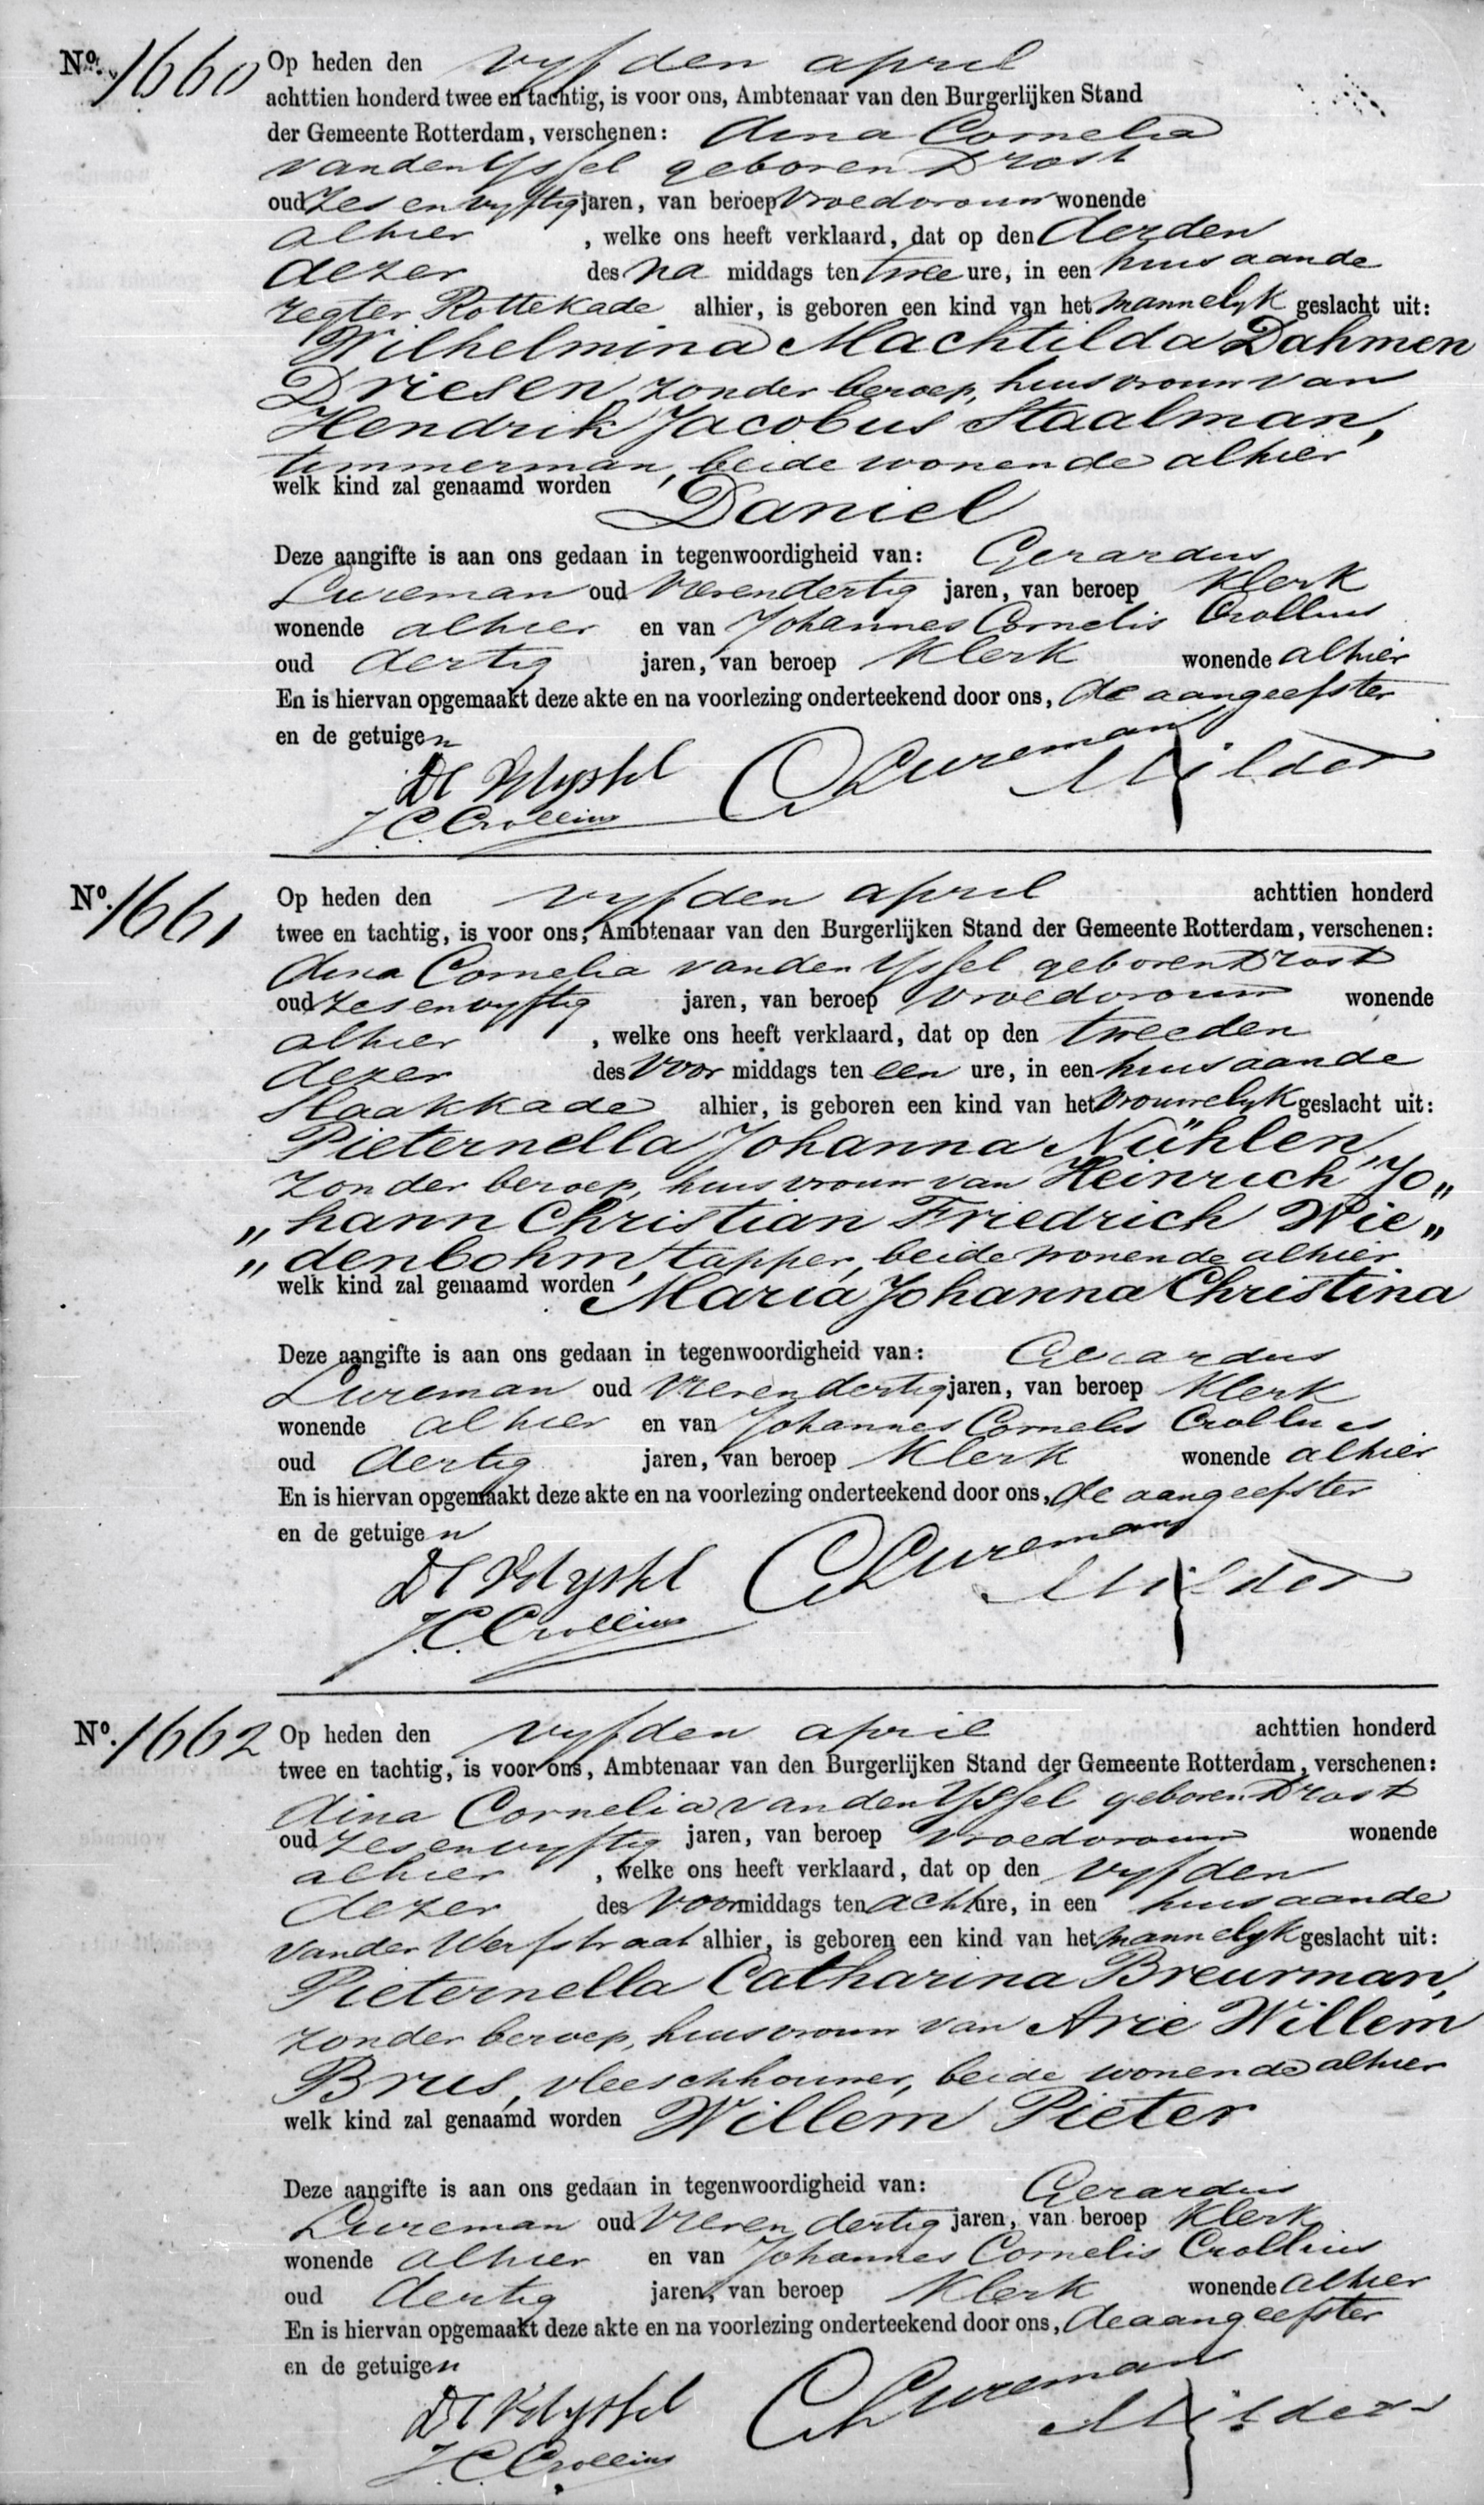 No. 1660 Op heden den vyfden april
achttien honderd twee en tachtig, is voor ons, Ambtenaar van den Burgerlijken Stand
der Gemeente Rotterdam, verschenen: Aina Cornelia
van den Yssel geboren Drost
oud zes en vyftig jaren, van beroep vroedvrouw wonende
alhier , welke ons heeft verklaard, dat op den derden
dezer des na middags ten twee ure, in een huis aan de
regter Rottekade alhier, is geboren een kind van het mannelyk geslacht uit:
Wilhelmina Machtilda Dahmen
Driesen, zonder beroep, huisvrouw van
Hendrik Jacobus Staalman,
timmerman, beide wonende alhier
welk kind zal genaamd worden Daniel
Deze aangifte is aan ons gedaan in tegenwoordigheid van: Gerardus
Lureman oud vierendertig jaren, van beroep klerk
wonende alhier en van Johannes Cornelis Crollius
oud dertig jaren, van beroep klerk wonende alhier
En is hiervan opgemaakt deze akte en na voorlezing onderteekend door ons, de aangeefster
en de getuigen
GLureman
Milders
J.C. Crollius
No. 1661 Op heden den vyfden april achttien honderd
twee en tachtig, is voor ons, Ambtenaar van den Burgerlijken Stand der Gemeente Rotterdam, verschenen:
Aina Cornelia van den Yssel geboren Drost
oud zes en vyftig jaren, van beroep vroedvrouw wonende
alhier , welke ons heeft verklaard, dat op den tweeden
dezer des voor middags ten een ure, in een huis aan de
Slaakkade alhier, is geboren een kind van het vrouwelyk geslacht uit:
Pieternella Johanna Nühlen,
zonder beroep, huisvrouw van Heinrich Jo„
„hann Christian Friedrich Wie„
„denbohm, tapper, beide wonende alhier
welk kind zal genaamd worden Maria Johanna Christina
Deze aangifte is aan ons gedaan in tegenwoordigheid van: Gerardus
Lureman oud vierendertig jaren, van beroep klerk
wonende alhier en van Johannes Cornelis Crollius
oud dertig jaren, van beroep klerk wonende alhier
En is hiervan opgemaakt deze akte en na voorlezing onderteekend door ons, de aangeefster
en de getuigen
GLureman
Milders
J.C. Crollius
No. 1662 Op heden den vyfden april achttien honderd
twee en tachtig, is voor ons, Ambtenaar van den Burgerlijken Stand der Gemeente Rotterdam, verschenen:
Aina Cornelia van den Yssel geboren Drost
oud zes en vyftig jaren, van beroep vroedvrouw wonende
alhier , welke ons heeft verklaard, dat op den vyfden
dezer des voormiddags ten acht ure, in een huis aan de
van der Werfstraat alhier, is geboren een kind van het mannelyk geslacht uit:
Pieternella Catharina Breurman,
zonder beroep, huisvrouw van Arie Willem
Brus, vleeschhouwer, beide wonende alhier
welk kind zal genaamd worden Willem Pieter
Deze aangifte is aan ons gedaan in tegenwoordigheid van: Gerardus
Lureman oud vieren dertig jaren, van beroep klerk
wonende alhier en van Johannes Cornelis Crollius
oud dertig jaren, van beroep klerk wonende alhier
En is hiervan opgemaakt deze akte en na voorlezing onderteekend door ons, de aangeefster
en de getuigen
GLureman
Milders
J.C. Crollius